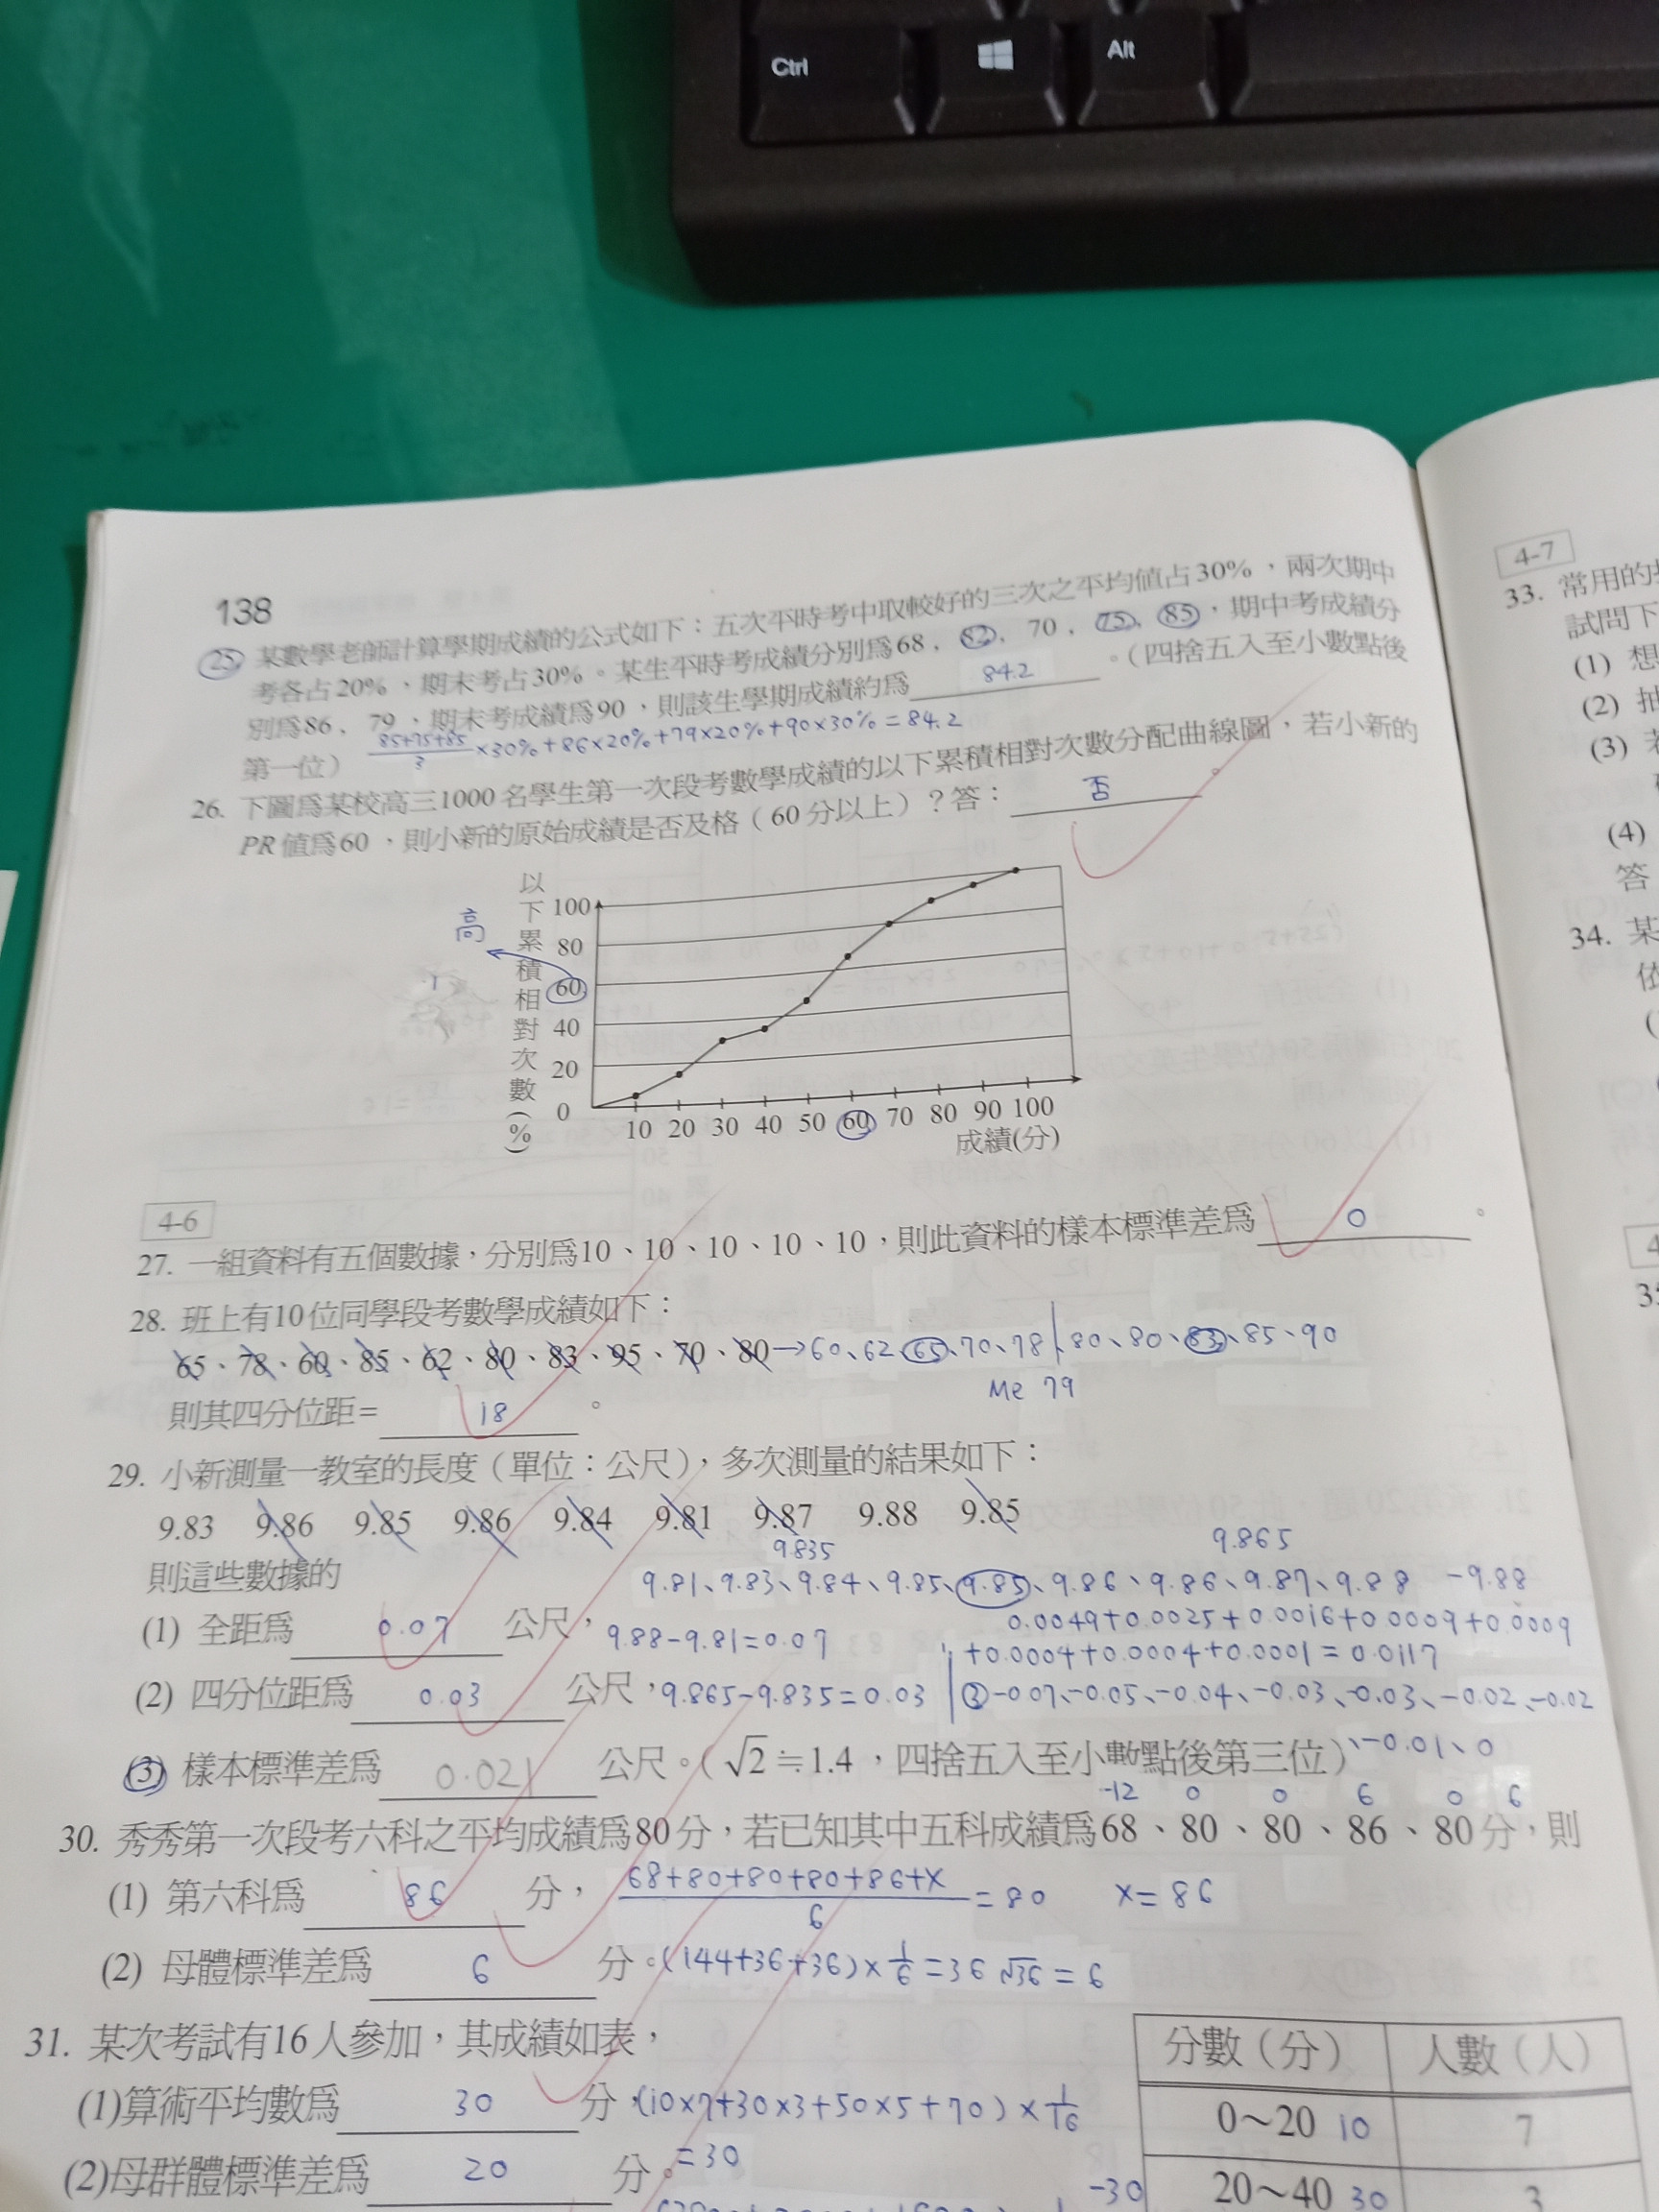 Ctrl
Alt
138
25. 某數學老師計算學期成績的公式如下：五次平時考中取較好的三次之平均值占30%，兩次期中
考各占20%、期末考占30%。某生平時考成績分別為68、82、70、75、85，期中考成績分
別為86、79，期末考成績為90，則該生學期成績約為 84.2 。（四捨五入至小數點後
第一位） ×30%+86×20%+79×20%+90×30%=84.2
26. 下圖為某校高三1000名學生第一次段考數學成績的以下累積相對次數分配曲線圖，若小新的
PR值為60，則小新的原始成績是否及格（60分以上）？答： 否 。
以下累積相對次數(%)
高
100
80
60
40
20
0
10 20 30 40 50 60 70 80 90 100
成績(分)
4-6
27. 一組資料有五個數據，分別為10、10、10、10、10，則此資料的樣本標準差為 0 。
28. 班上有10位同學段考數學成績如下：
65、78、60、85、62、80、83、95、70、80→60、62、65、70、78|80、80、83、85、90
Me 79
則其四分位距= 18 。
29. 小新測量一教室的長度（單位：公尺），多次測量的結果如下：
9.83 9.86 9.85 9.86 9.84 9.81 9.87 9.88 9.85
9.835 9.865
則這些數據的
9.81、9.83、9.84、9.85、9.85、9.86、9.86、9.87、9.88 -9.88
(1) 全距為 0.07 公尺， 9.88-9.81=0.07
0.0049+0.0025+0.0016+0.0009+0.0009
+0.0004+0.0004+0.0001=0.0117
(2) 四分位距為 0.03 公尺，9.865-9.835=0.03
③-0.07、-0.05、-0.04、-0.03、-0.03、-0.02、-0.02
、-0.01、0
(3) 樣本標準差為 0.021 公尺。（√2≒1.4，四捨五入至小數點後第三位）
-12 0 0 6 0 6
30. 秀秀第一次段考六科之平均成績為80分，若已知其中五科成績為68、80、80、86、80分，則
(1) 第六科為 86 分， (68+80+80+80+86+x)/6=80 x=86
(2) 母體標準差為 6 分。(144+36+36)×1/6=36 √36=6
31. 某次考試有16人參加，其成績如表，
(1)算術平均數為 30 分，(10×7+30×3+50×5+70)×1/16
=30
(2)母群體標準差為 20 分。
-30
分數（分） 人數（人）
0～20 10 7
20～40 30 3
4-7
33. 常用的
試問下
(1) 想
(2) 抽
(3) 若
(4)
答
34. 某
依